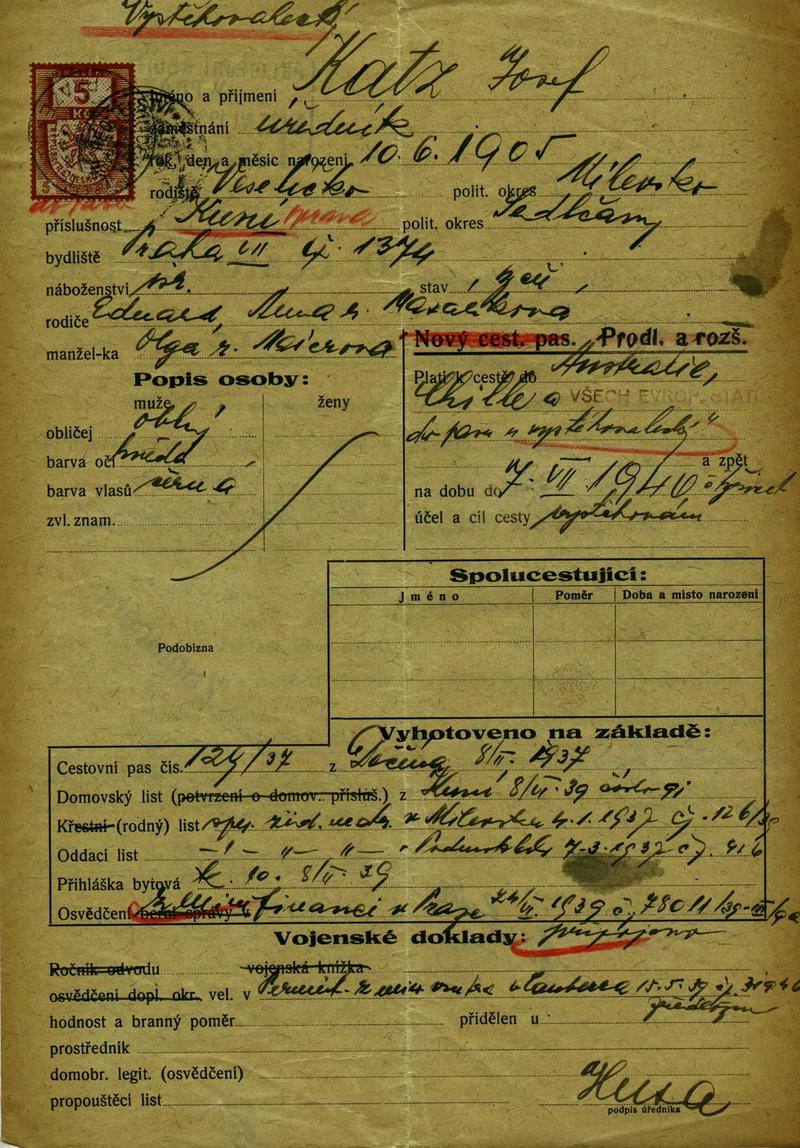 Vystěhovalecký
5
Kč
jméno a příjmení Katz Josef
zaměstnání úředník
rok, den a měsíc narození 10. 6. 1905
rodiště Veselíčko polit. okres Milevsko
příslušnost Kuní oprava polit. okres Sedlčany
bydliště Praha VII čj. 1374
náboženství stav
rodiče Eduard, Anna r.
manžel-ka Olga r. Maierova
Nový cest. pas. Prodl. a rozš.
Popis osoby:
Platí k cestě do Australie,
muže ženy
Chille a VŠECH EVROP. STÁTŮ
obličej oblý
do pasu "vystěhovalecký"
barva očí hnědá
a zpět
barva vlasů černá
na dobu do 7. VII. 1940
zvl. znam.
účel a cíl cesty vystěhování
Spolucestující:
Jméno Poměr Doba a místo narození
Podobizna
Vyhotoveno na základě:
Cestovní pas čís. 124/37 z 8/II. 1937
Domovský list (potvrzení o domov. přísluš.) z Kuní 8/VI. 39 číslo 91
Křestní (rodný) list žid. v Milevsku 4. 1. 1937 čj. 126/
Oddací list -"- -"- -"- 7-3. 1937 čj.
Přihláška bytová 10. 8/VI 39
Osvědčení berní správy v financí v Praze 24/VI. 1939 č. 78011/39
Vojenské doklady: připojeno
Ročník odvodu vojenská knížka
osvědčení dopl. okr. vel. v Permit. 15. 5. 39 čj.
hodnost a branný poměr předložen přidělen u
prostředník
domobr. legit. (osvědčení)
propouštěcí list
Husa
podpis úředníka